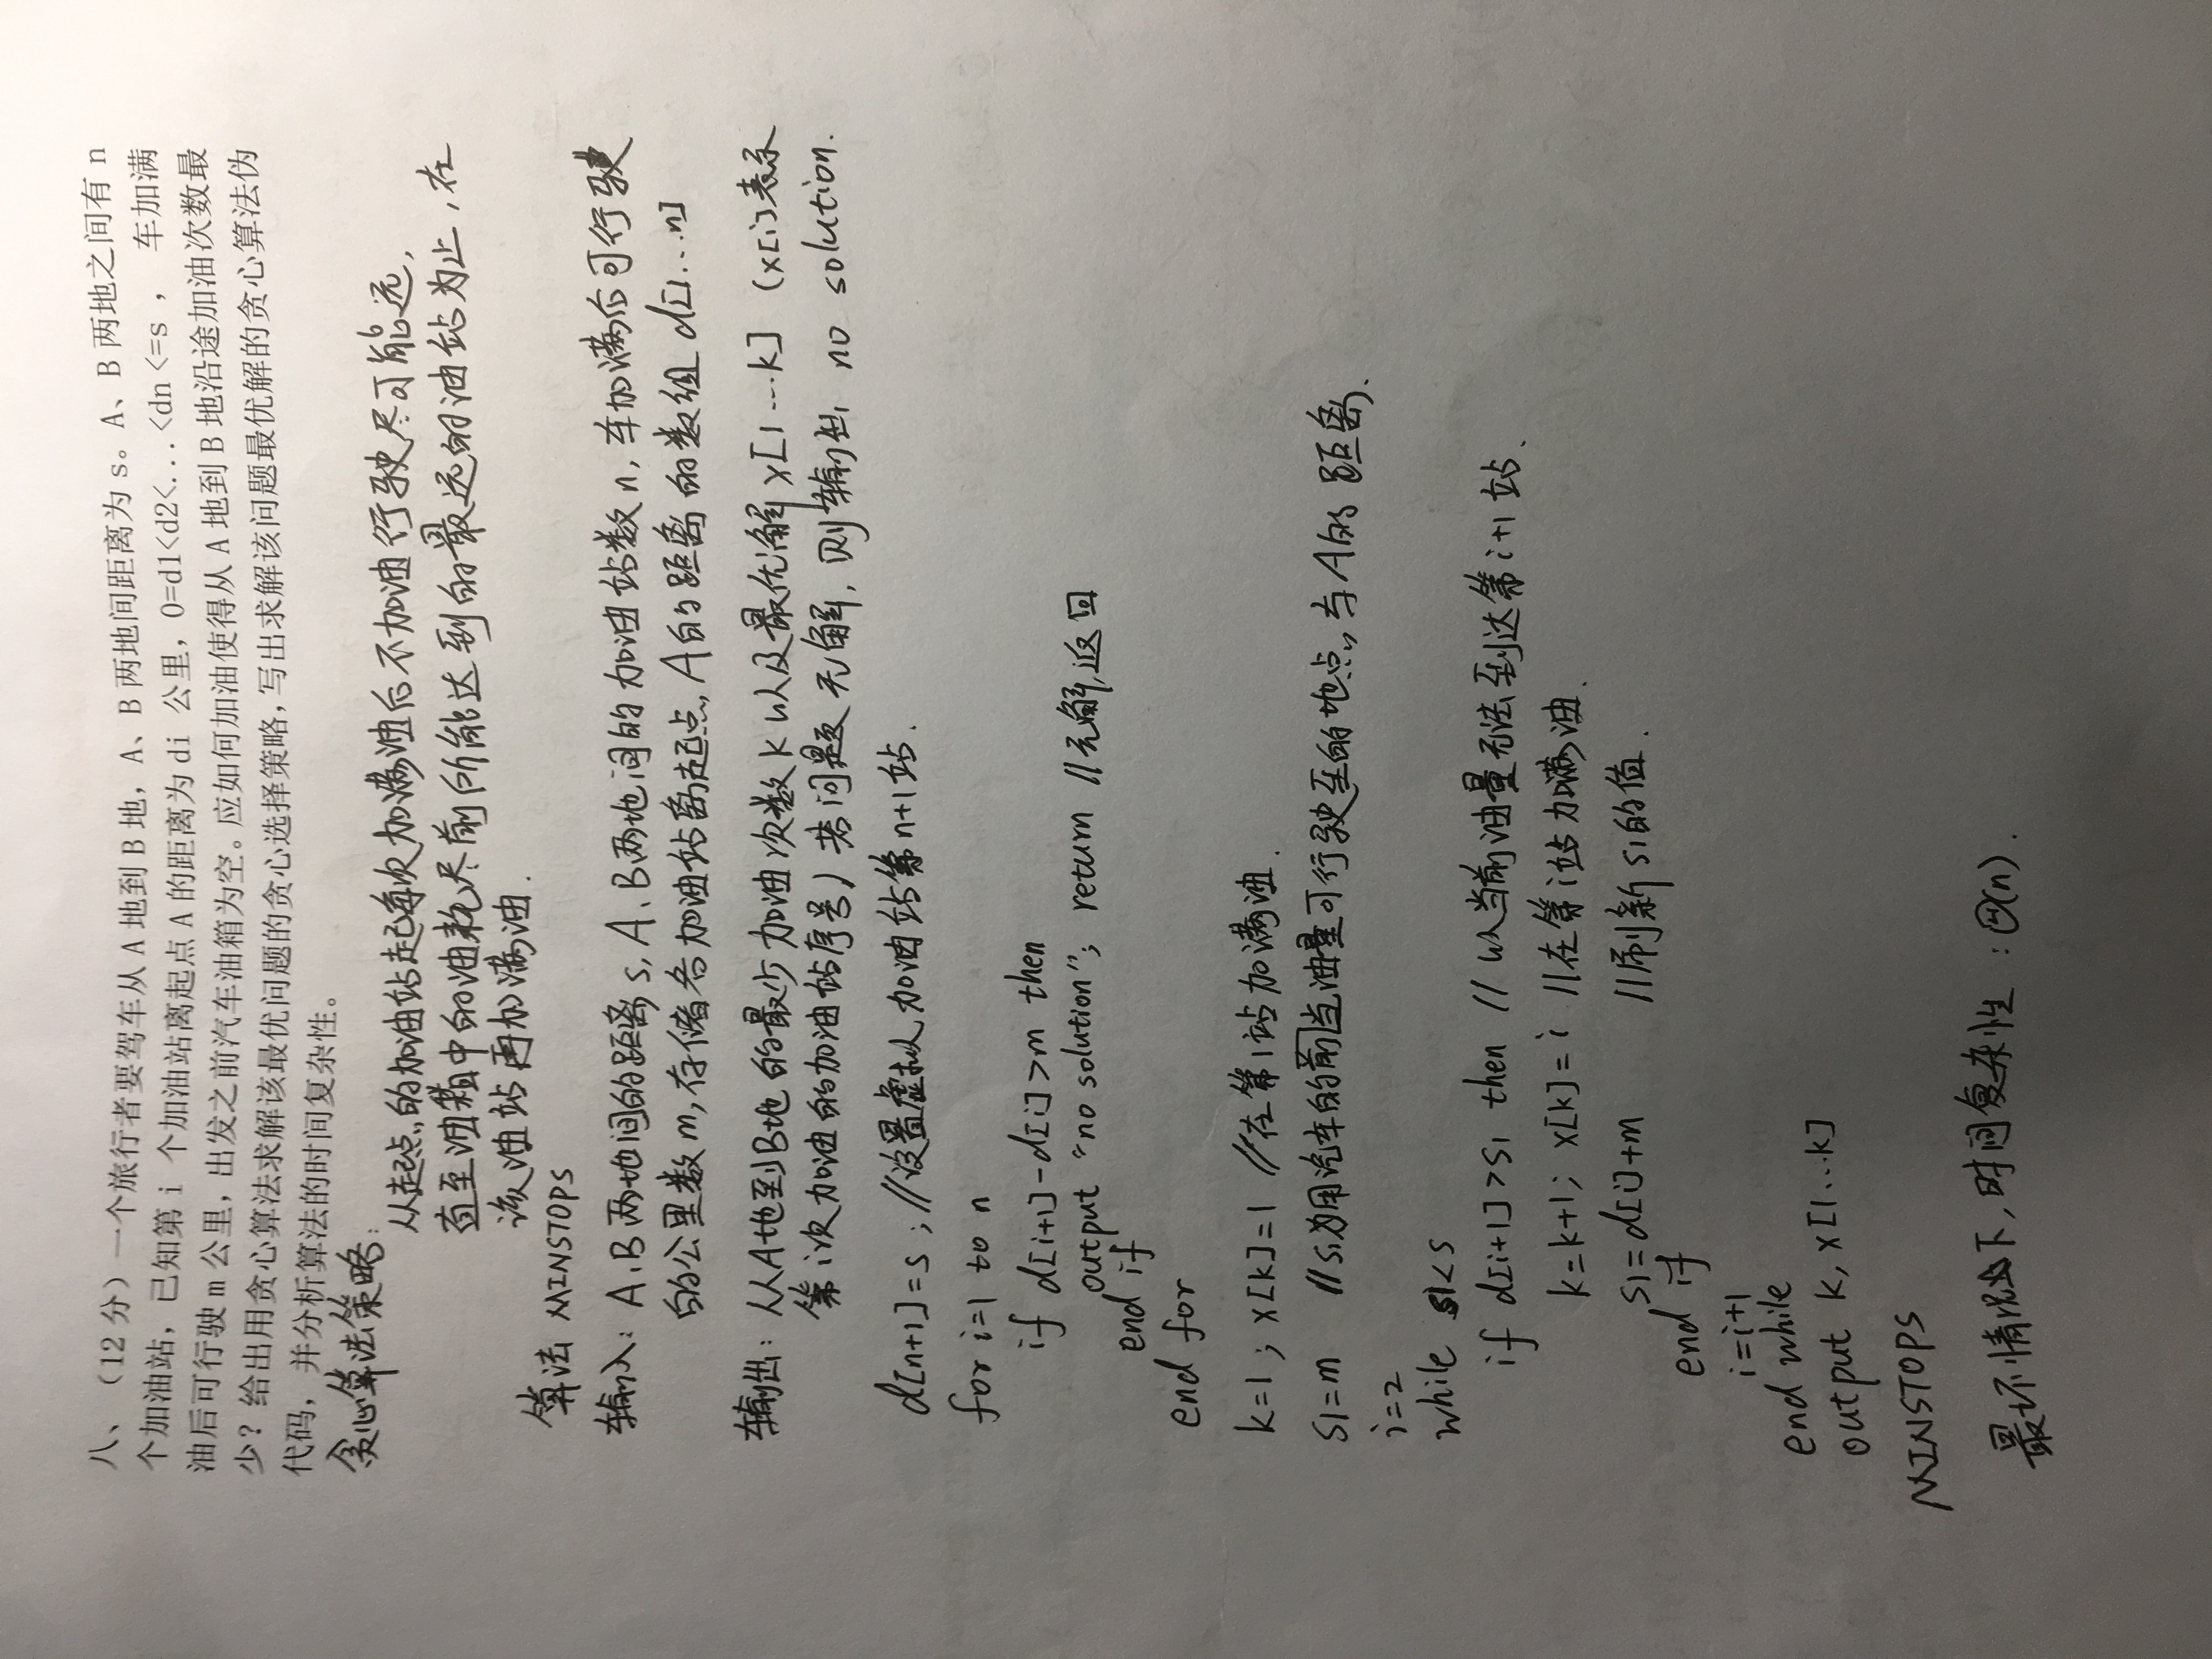 八、（12 分）一个旅行者要驾车从 A 地到 B 地，A、B 两地间距离为 s。A、B 两地之间有 n
个加油站，已知第 i 个加油站离起点 A 的距离为 di 公里，0=d1<d2<...<dn<=s ， 车加满
油后可行驶 m 公里，出发之前汽车油箱为空。应如何加油使得从 A 地到 B 地沿途加油次数最
少？给出用贪心算法求解该最优问题的贪心选择策略，写出求解该问题最优解的贪心算法伪
代码，并分析算法的时间复杂性。
贪心算法策略：
从起点的加油站起每次加满油后不加油行驶尽可能远，
直至油箱中的油耗尽前所能达到的最远的油站为止，在
该油站再加满油.
算法 MINSTOPS
输入：A、B两地间的距离s，A、B两地间的加油站数n，车加满后可行驶
的公里数m，存储各加油站离起点A的距离的数组d[1...n]
输出：从A地到B地的最少加油次数k以及最优解x[1...k]（x[i]表示
第i次加油的加油站序号）若问题无解，则输出 no solution.
d[n+1]=s；//设置虚拟加油站第n+1站.
for i=1 to n
if d[i+1]-d[i]>m then
output “no solution”; return //无解,返回
end if
end for
k=1; x[k]=1 //在第1站加满油.
s1=m //s1为用汽车的前当油量可行驶至的地点与A的距离.
i=2
while s1<s
if d[i+1]>s1 then // 以当前油量无法到达第i+1站.
k=k+1; x[k]=i //在第i站加满油.
s1=d[i]+m //刷新s1的值.
end if
i=i+1
end while
output k, x[1...k]
MINSTOPS
最坏情况下,时间复杂性：Θ(n).